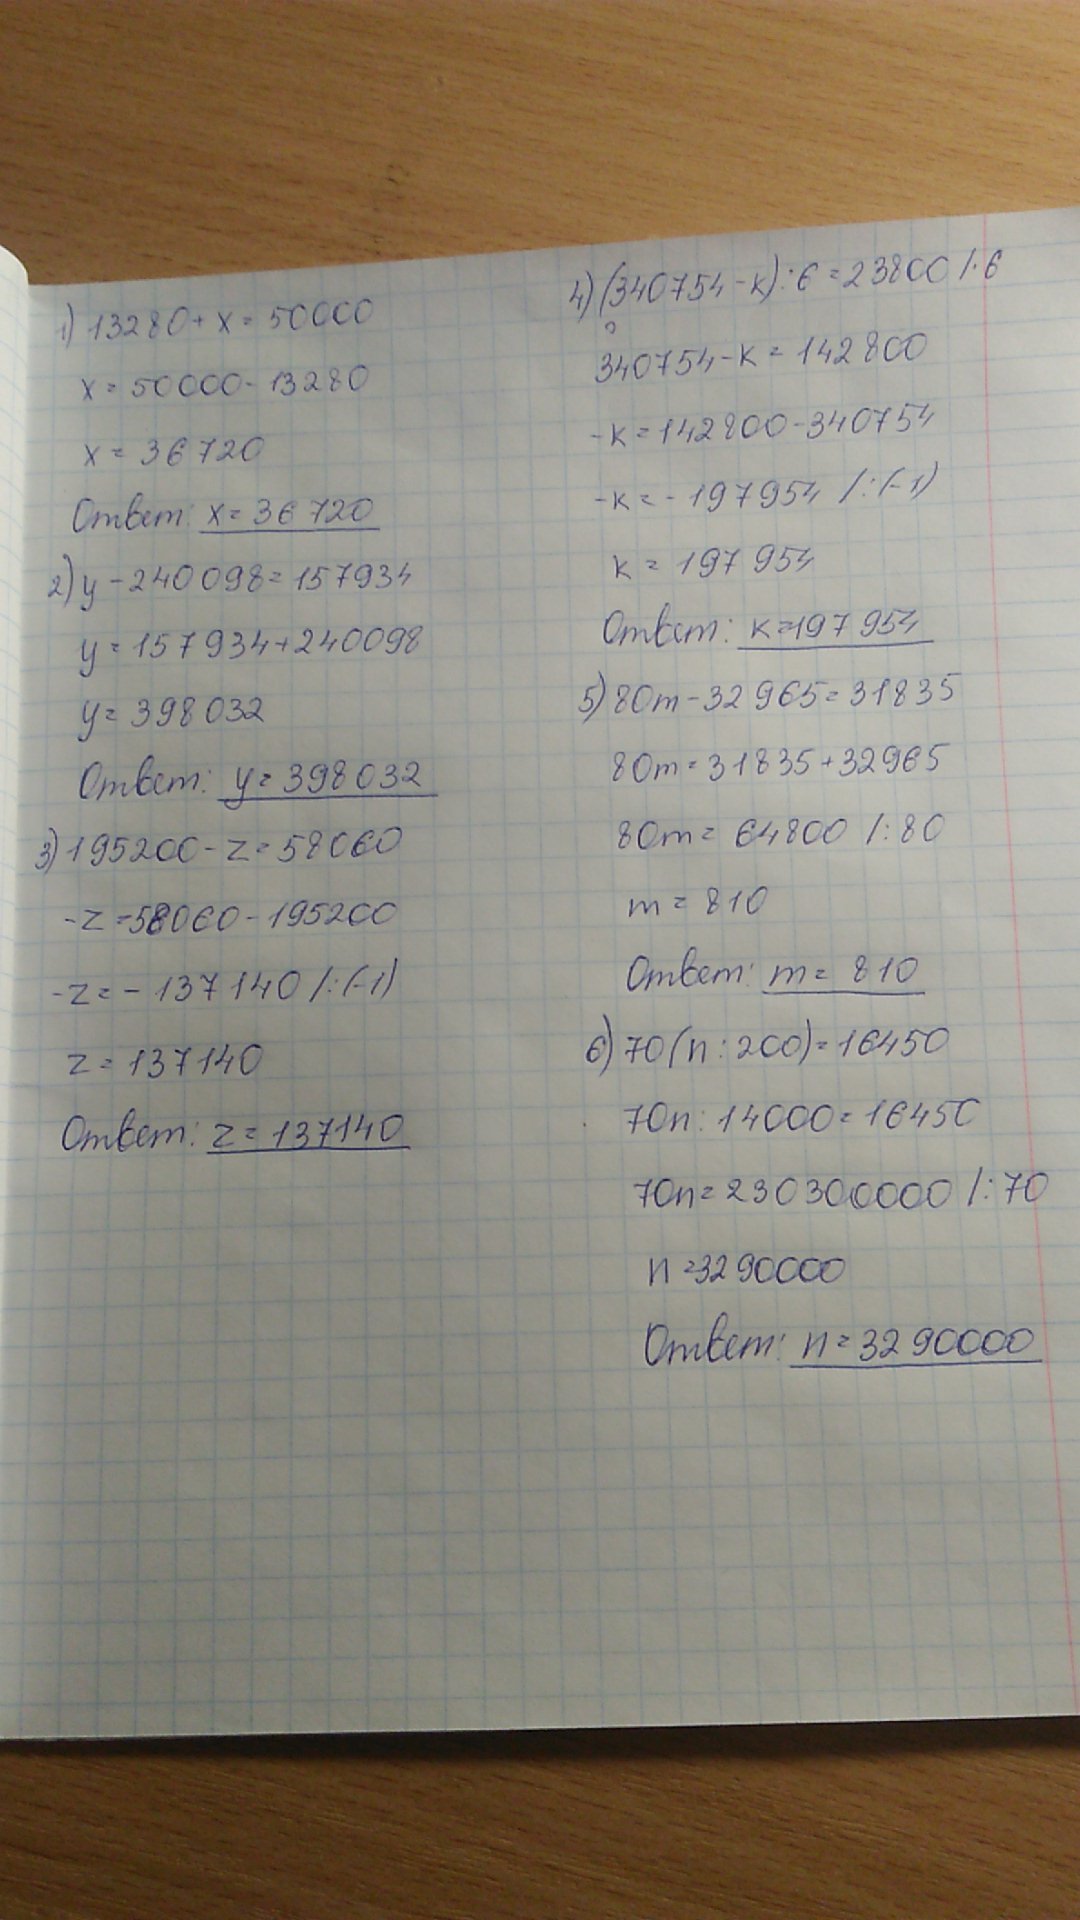 1) 13280 + x = 50000
x = 50000 - 13280
x = 36720
Ответ: x = 36720
2) y - 240098 = 157934
y = 157934 + 240098
y = 398032
Ответ: y = 398032
3) 195200 - z = 58060
-z = 58060 - 195200
-z = - 137140 /:(-1)
z = 137140
Ответ: z = 137140
4) (340754 - k) : 6 = 23800 /·6
340754 - k = 142800
-k = 142800 - 340754
-k = - 197954 /:(-1)
k = 197954
Ответ: k = 197954
5) 80m - 32965 = 31835
80m = 31835 + 32965
80m = 64800 /:80
m = 810
Ответ: m = 810
6) 70(n : 200) = 16450
70n : 14000 = 16450
70n = 230300000 /:70
n = 3290000
Ответ: n = 3290000